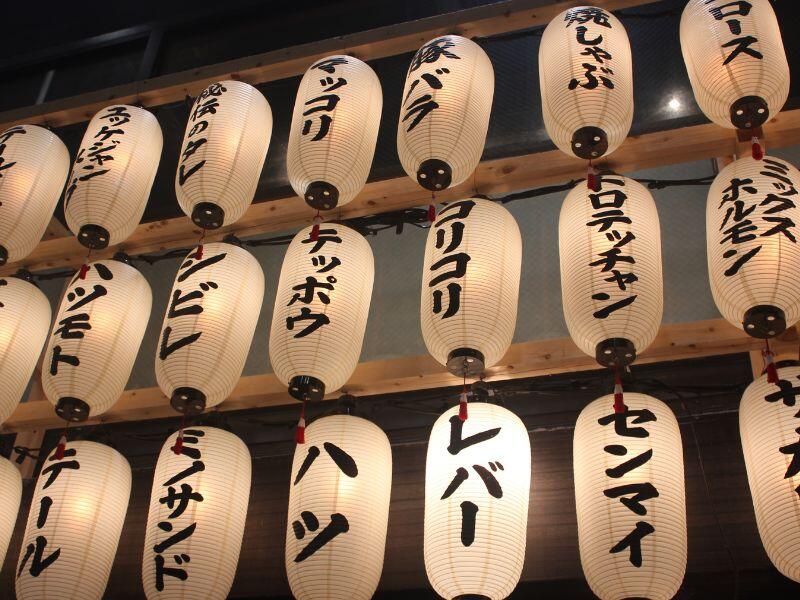 ユッケジャン
秘伝のタレ
マッコリ
豚バラ
焼しゃぶ
ロース
ハツモト
シビレ
テッポウ
コリコリ
トロテッチャン
ミックス
ホルモン
テール
ミノサンド
ハツ
レバー
センマイ